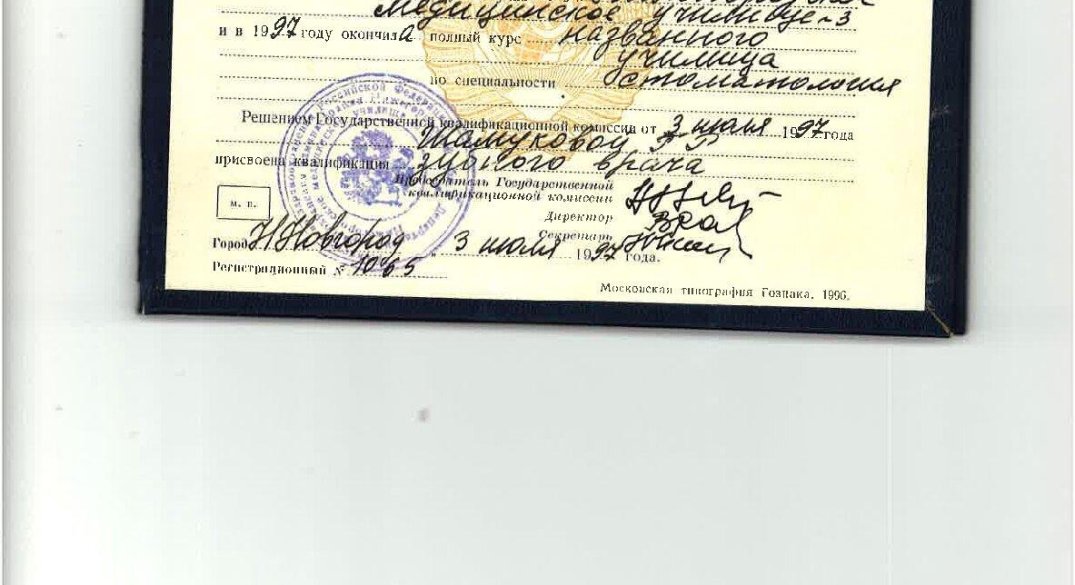 медицинское училище-3
и в 1997 году окончила полный курс названного
училища
по специальности стоматология
Решением Государственной квалификационной комиссии от 3 июля 1997 года
Шамуковой Р Р
присвоена квалификация зубного врача
Председатель Государственной
квалификационной комиссии
М. П.
Директор
Секретарь
Город Н Новгород 3 июля 1997 года.
Регистрационный № 1065
Московская типография Гознака. 1996.